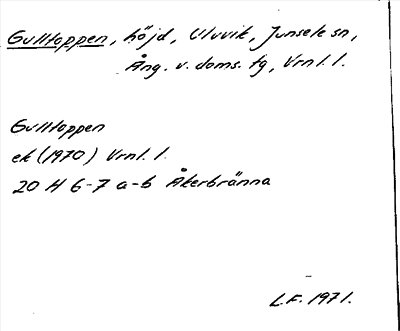 Gulltoppen, höjd, Uluvik, Junsele sn,
Ång. v. doms. tg, Vrnl. l.
Gulltoppen
ek (1970) Vrnl. l.
20 H 6-7 a-b Åkerbränna
L.F. 1971.